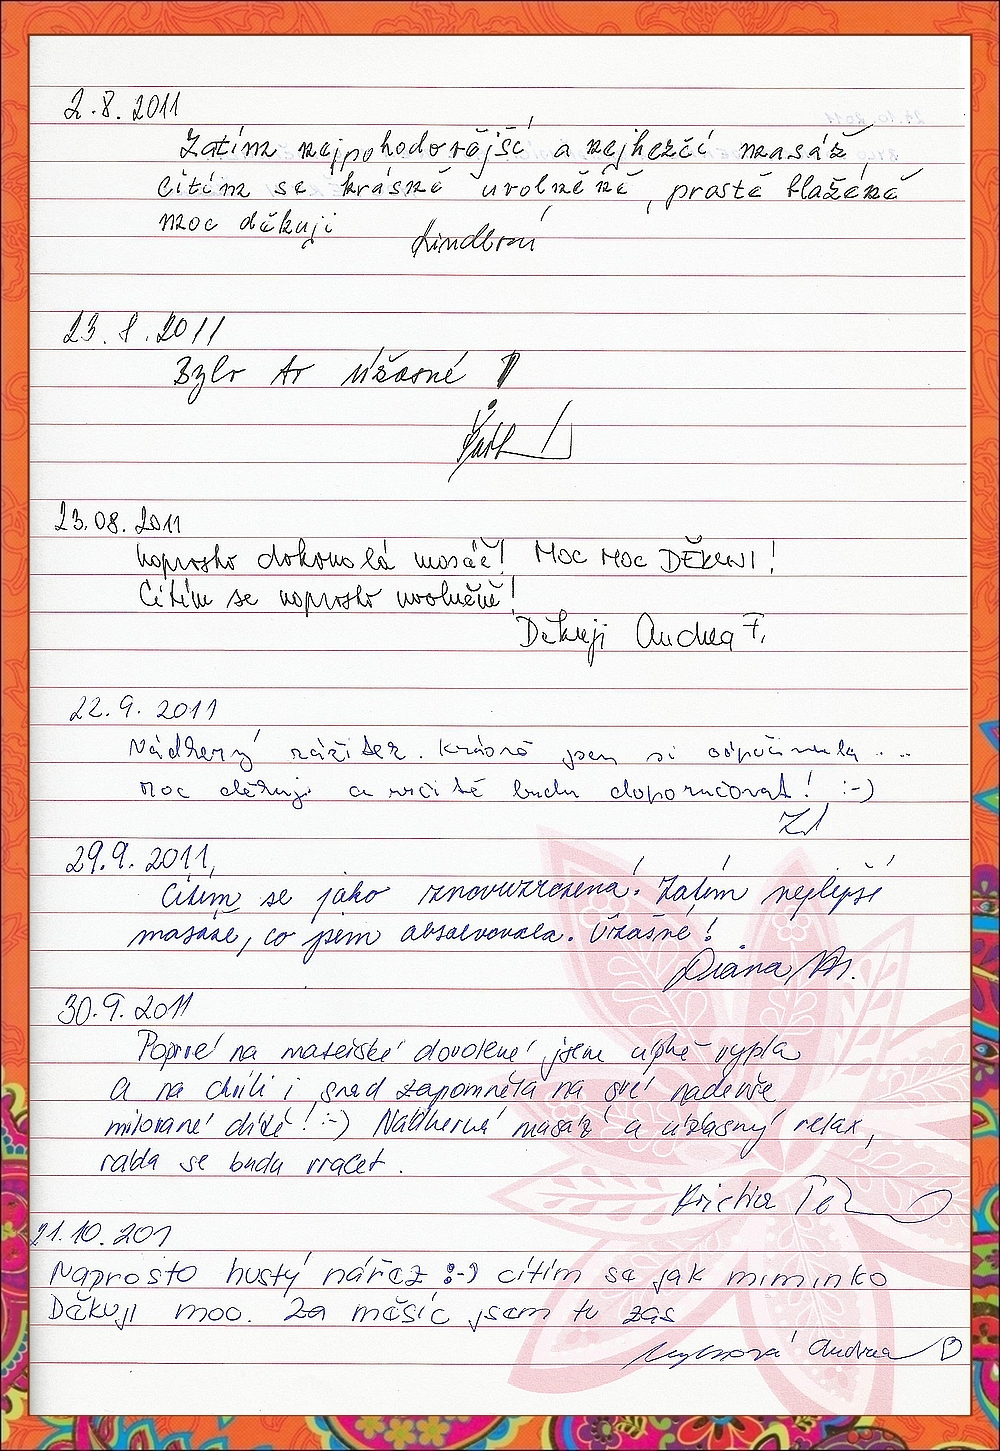 2.8.2011
Zatím nejpohodovější a nejhezčí masáž
cítím se krásně uvolněně, prostě blaženě
moc děkuji
23.8.2011
Bylo to úžasné !
23.08.2011
naprosto dokonalá masáž! MOC MOC DĚKUJI!
Cítím se naprosto uvolněně!
Děkuji Andrea F.
22.9.2011
Nádherný zážitek. Krásně jsem si odpočinula...
moc děkuji a určitě budu doporučovat! :-)
29.9.2011,
Cítím se jako znovuzrozená! Zatím nejlepší
masáže, co jsem absolvovala. Úžasné!
Diana M.
30.9.2011
Poprvé na mateřské dovolené jsem úplně vypla
a na chvíli i snad zapomněla na své nadevše
milované dítě! :-) Nádherná masáž a úžasný relax,
ráda se budu vracet.
21.10.201
Naprosto hustý nářez :-) cítím se jak miminko
Děkuji moc. Za měsíc jsem tu zas
Andrea